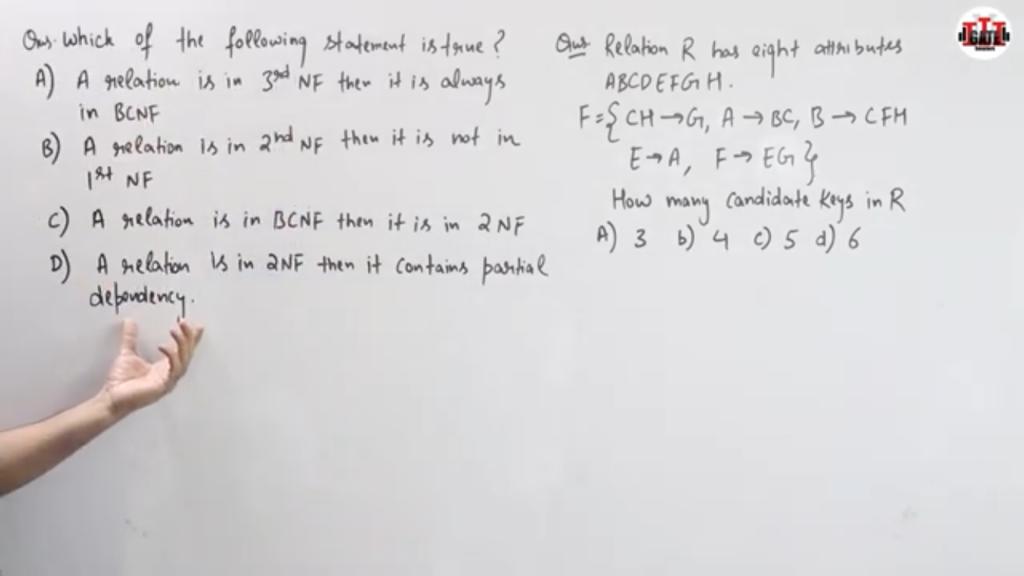 Ques. Which of the following statement is true?
A) A relation is in 3rd NF then it is always
in BCNF
B) A relation is in 2nd NF then it is not in
1st NF
C) A relation is in BCNF then it is in 2NF
D) A relation is in 2NF then it contains partial
dependency.
Ques Relation R has eight attributes
ABCDEFGH.
F={CH→G, A→BC, B→CFH
E→A, F→EG}
How many Candidate Keys in R
A) 3 b) 4 c) 5 d) 6
GATE